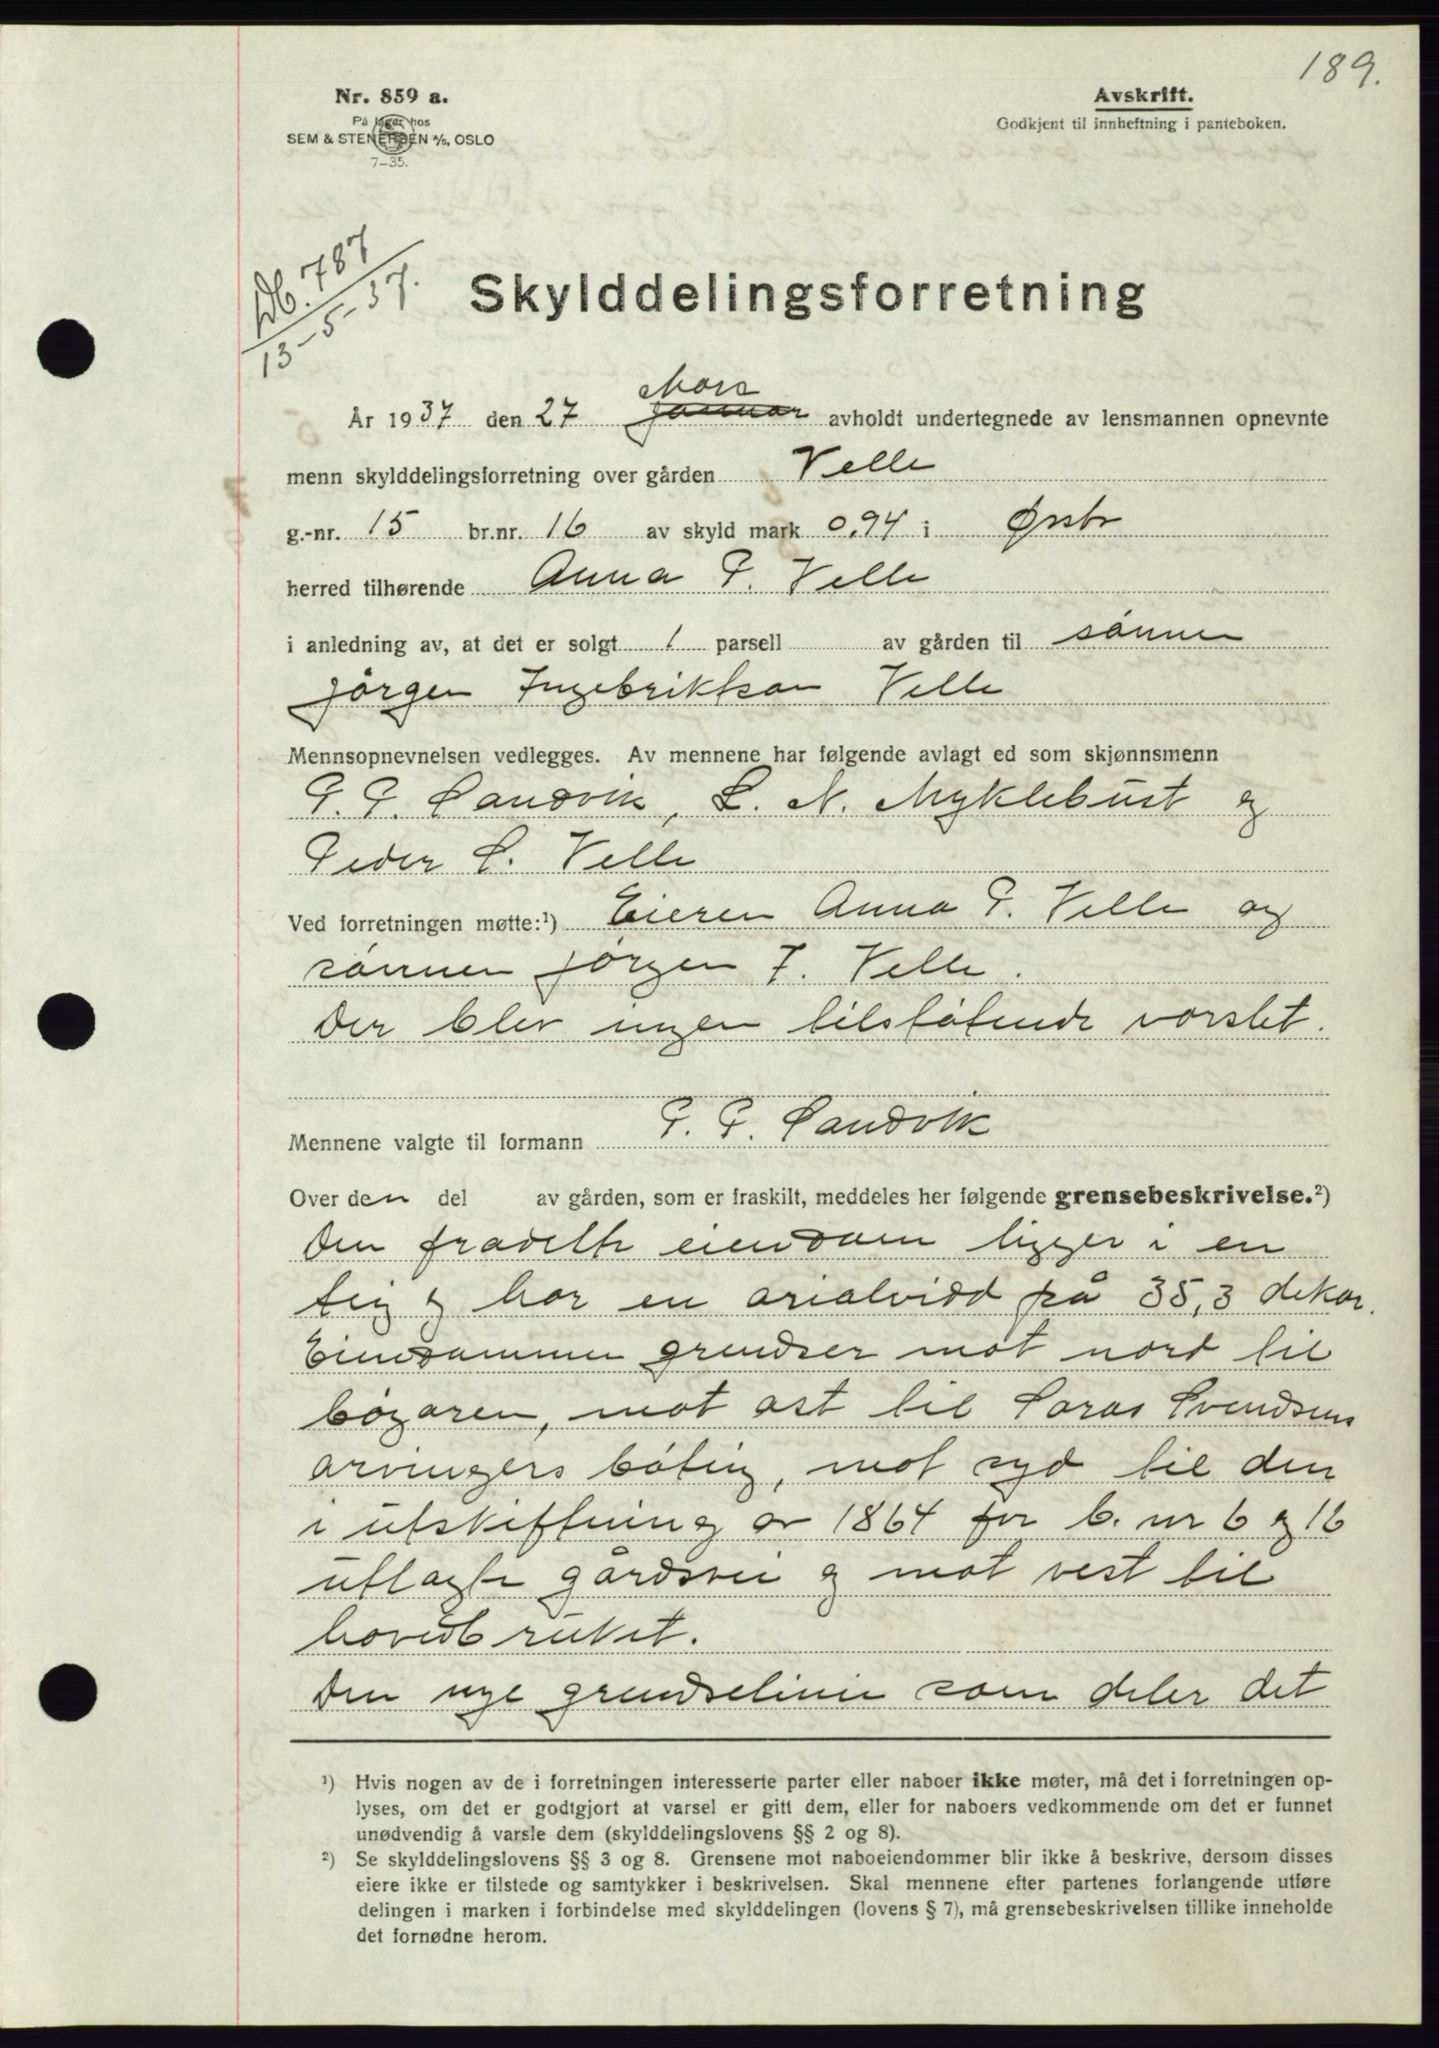 189.
Nr. 859 a.
På lager hos
SEM & STENERSEN A/S, OSLO
7-35.
Avskrift.
Godkjent til innheftning i panteboken.
Db. 787
13-5-37.
Skylddelingsforretning
Mars
År 1937 den 27 januar avholdt undertegnede av lensmannen opnevnte
menn skylddelingsforretning over gården Velle
g.-nr. 15 br.nr. 16 av skyld mark 0,94 i Ørsta
herred tilhørende Anna P. Velle
i anledning av, at det er solgt 1 parsell av gården til sønnen
Jørgen Ingebriktson Velle
Mennsopnevnelsen vedlegges. Av mennene har følgende avlagt ed som skjønnsmenn
P. P. Sandvik, L. N. Myklebust og
Peder S. Velle
Ved forretningen møtte:¹) Eieren Anna P. Velle og
sønnen Jørgen I. Velle.
Der blev ingen tilstøtende varslet.
Mennene valgte til formann P. P. Sandvik
Over den del av gården, som er fraskilt, meddeles her følgende grensebeskrivelse.²)
Den fradelte eiendom ligger i en
teig og har en arialvidd på 35,3 dekar.
Eiendommen grendser mot nord til
bøgaren, mot ost til Saras Svendsens
arvingers bøteig, mot syd til den
i utskiftning av 1864 for b. nr 6 og 16
utlagte gårdsvei og mot vest til
hovedbruket.
Den nye grendselinie som deler det
¹) Hvis nogen av de i forretningen interesserte parter eller naboer ikke møter, må det i forretningen op-
lyses, om det er godtgjort at varsel er gitt dem, eller for naboers vedkommende om det er funnet
unødvendig å varsle dem (skylddelingslovens §§ 2 og 8).
²) Se skylddelingslovens §§ 3 og 8. Grensene mot naboeiendommer blir ikke å beskrive, dersom disses
eiere ikke er tilstede og samtykker i beskrivelsen. Skal mennene efter partenes forlangende utføre
delingen i marken i forbindelse med skylddelingen (lovens § 7), må grensebeskrivelsen tillike inneholde
det fornødne herom.